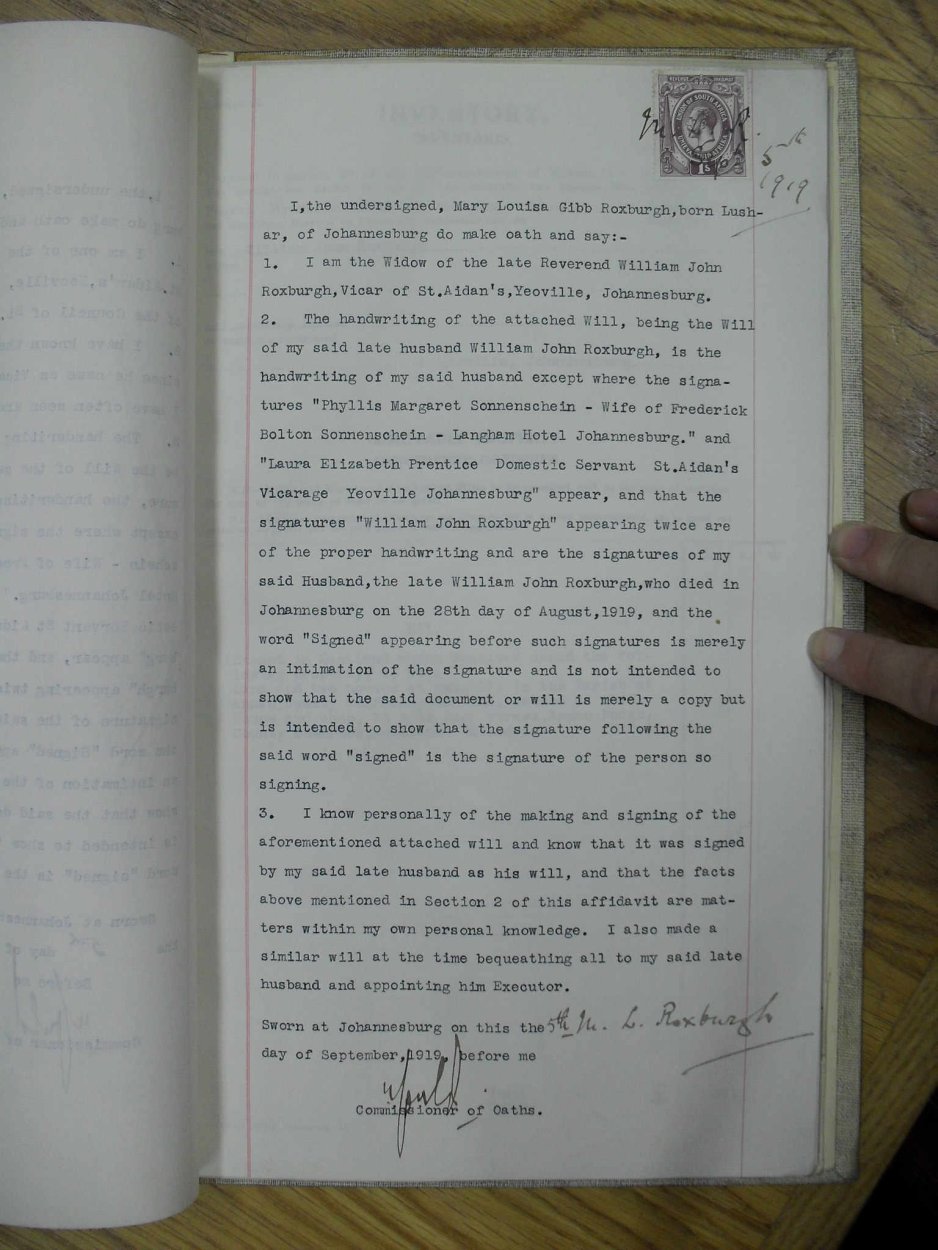 REVENUE INKOMST
UNION OF SOUTH AFRICA
1S
M. L. R.
5th
1919
I,the undersigned, Mary Louisa Gibb Roxburgh,born Lush-
ar, of Johannesburg do make oath and say:-
1. I am the Widow of the late Reverend William John
Roxburgh,Vicar of St.Aidan's,Yeoville, Johannesburg.
2. The handwriting of the attached Will, being the Will
of my said late husband William John Roxburgh, is the
handwriting of my said husband except where the signa-
tures "Phyllis Margaret Sonnenschein - Wife of Frederick
Bolton Sonnenschein - Langham Hotel Johannesburg." and
"Laura Elizabeth Prentice Domestic Servant St.Aidan's
Vicarage Yeoville Johannesburg" appear, and that the
signatures "William John Roxburgh" appearing twice are
of the proper handwriting and are the signatures of my
said Husband,the late William John Roxburgh,who died in
Johannesburg on the 28th day of August,1919, and the
word "Signed" appearing before such signatures is merely
an intimation of the signature and is not intended to
show that the said document or will is merely a copy but
is intended to show that the signature following the
said word "signed" is the signature of the person so
signing.
3. I know personally of the making and signing of the
aforementioned attached will and know that it was signed
by my said late husband as his will, and that the facts
above mentioned in Section 2 of this affidavit are mat-
ters within my own personal knowledge. I also made a
similar will at the time bequeathing all to my said late
husband and appointing him Executor.
Sworn at Johannesburg on this the 5th M. L. Roxburgh
day of September,1919, before me
Commissioner of Oaths.